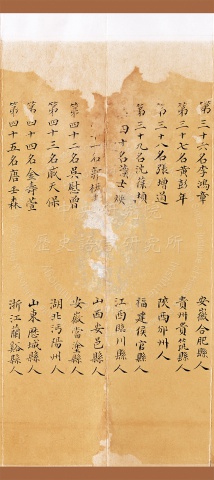 第三十六名李鴻章 安徽合肥縣人
第三十七名黃彭年 貴州貴筑縣人
第三十八名張增道 陝西鄜州人
第三十九名沈葆楨 福建侯官縣人
四十名 江西臨川縣人
一名郭 山西安邑縣人
第四十二名吳慰曾 安徽當塗縣人
第四十三名戚天保 湖北沔陽州人
第四十四名金壽萱 山東歷城縣人
第四十五名唐壬森 浙江蘭谿縣人